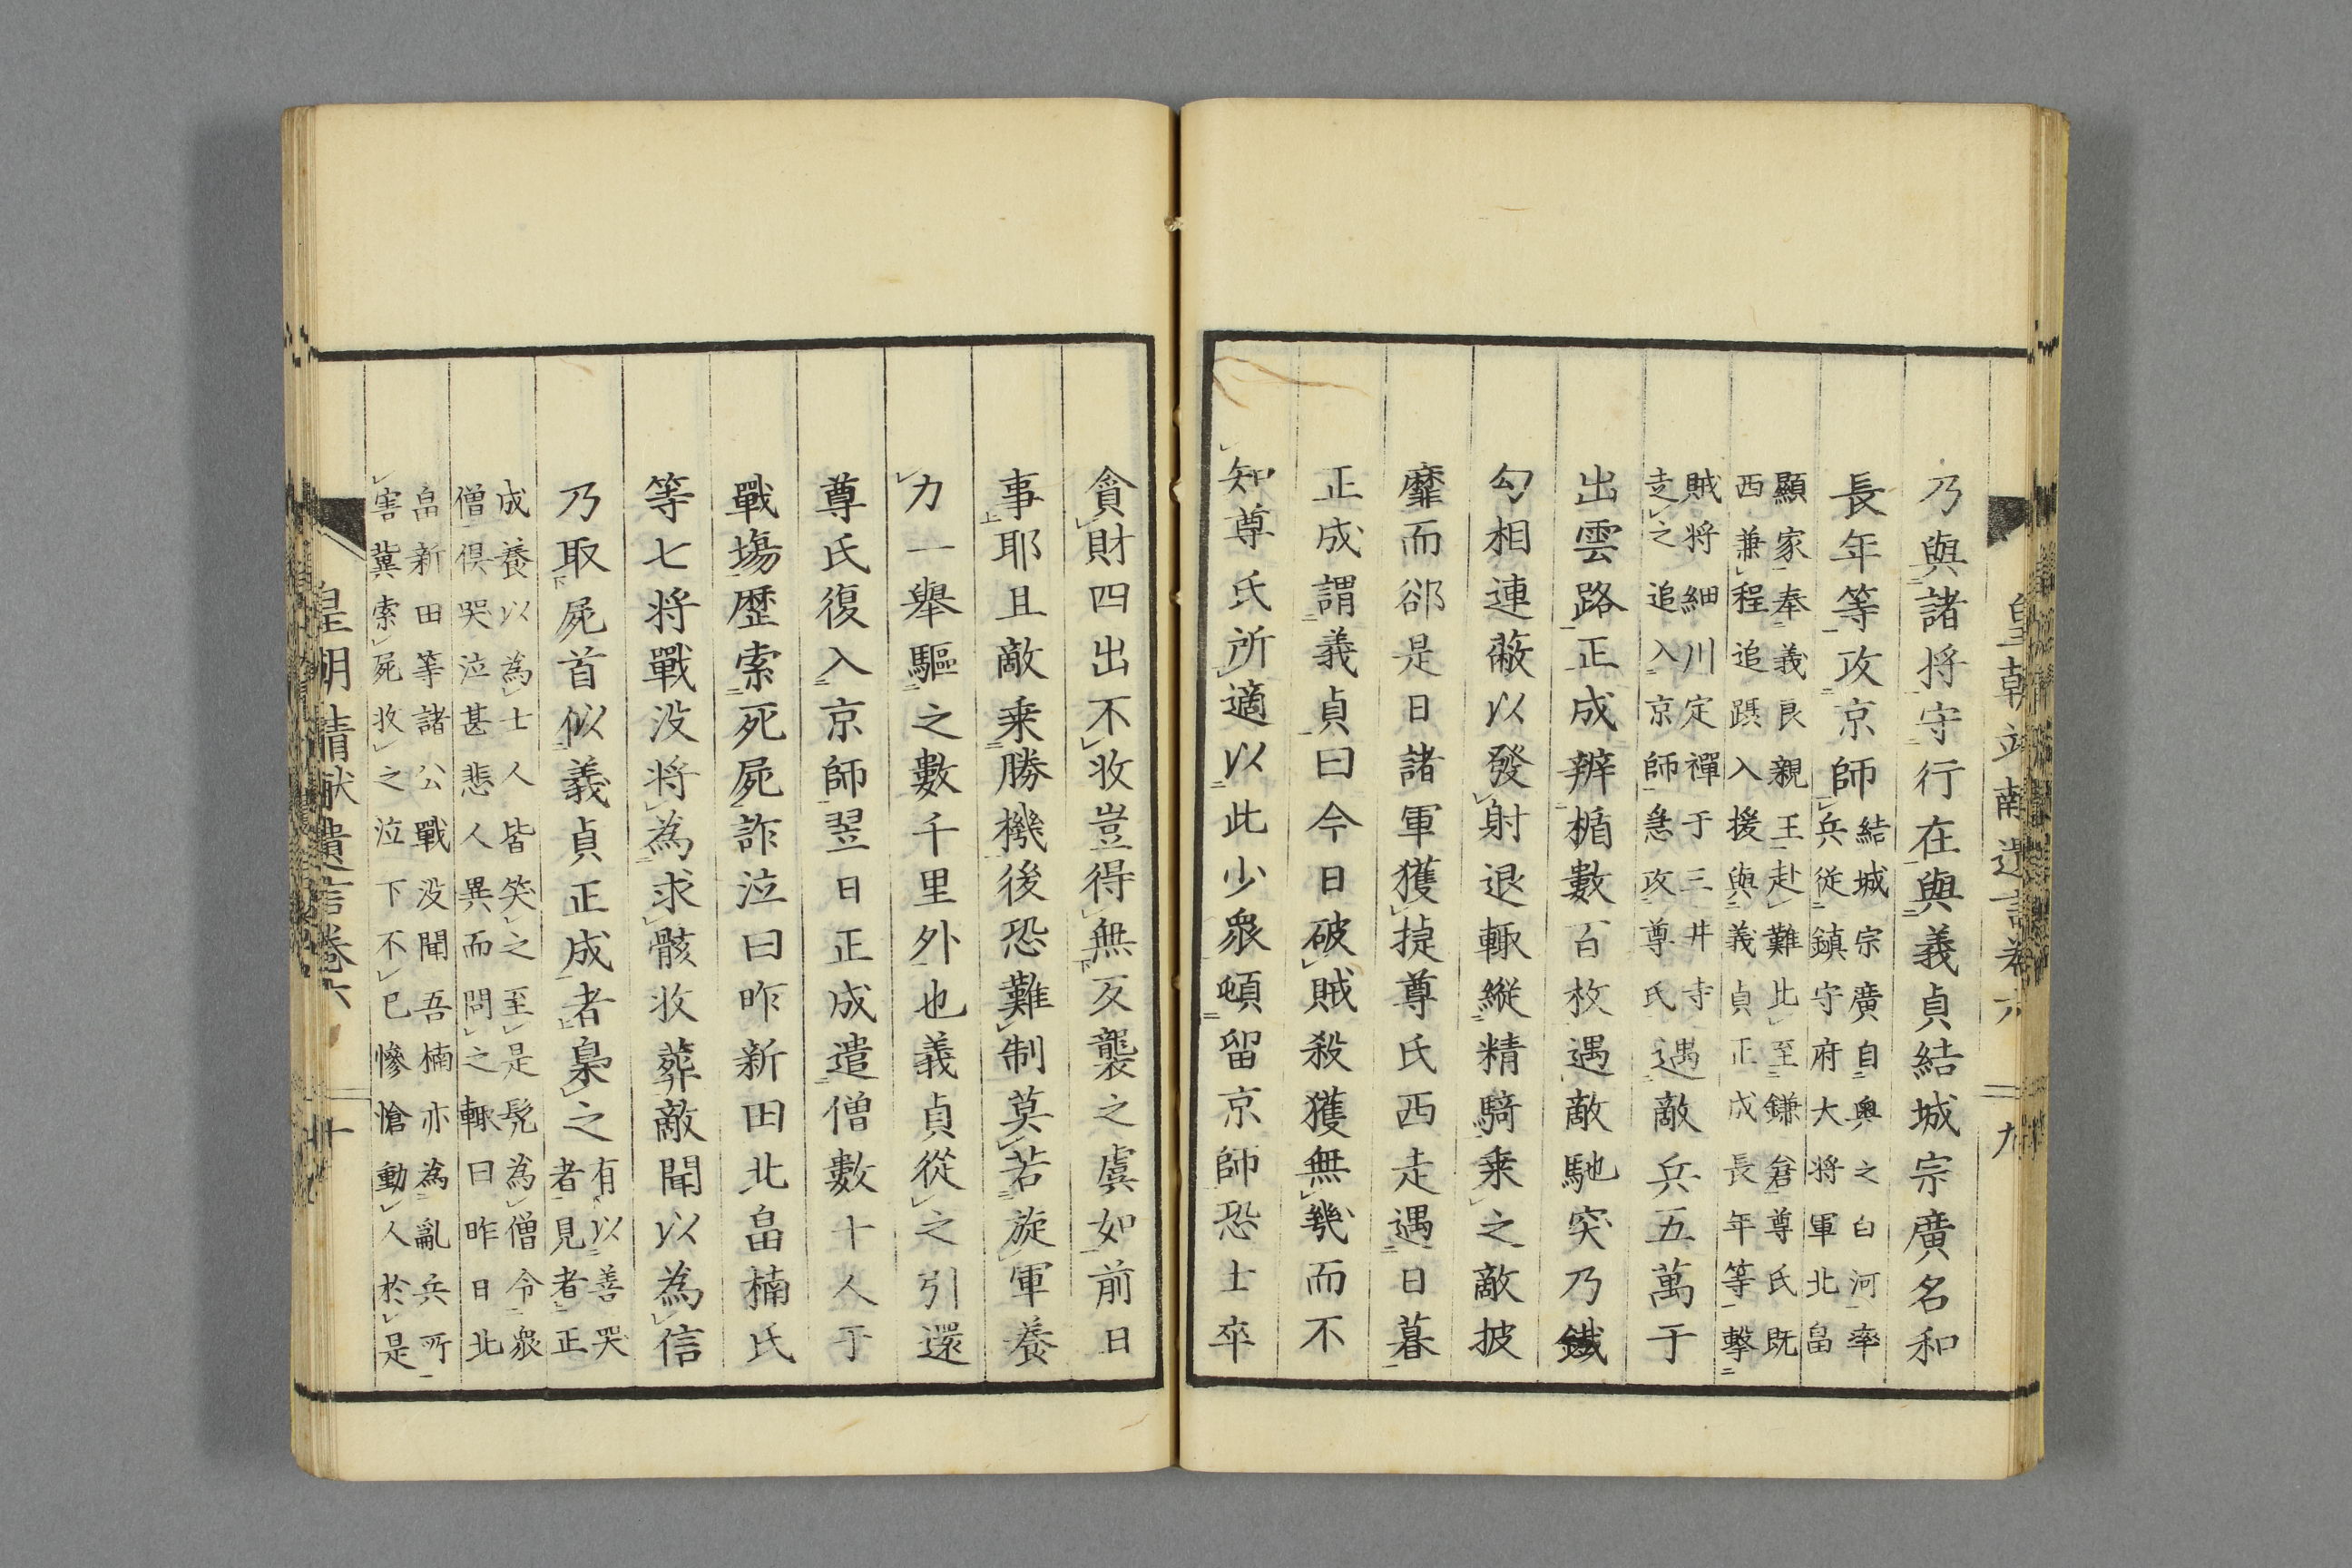 乃與諸将守行在與義貞結城宗廣名和
長年等攻京師結城宗廣自奥之白河率
兵從鎮守府大将軍北畠
顯家奉義良親王赴難此至鎌倉尊氏既
西兼程追躡入援與義貞正成長年等撃
賊将細川定禪于三井寺
走之追入京師急攻尊氏遇敵兵五萬于
出雲路正成辨楯數百枚遇敵馳突乃鐵
勾相連蔽以發射退輙縱精騎乗之敵披
靡而郤是日諸軍獲捷尊氏西走遇日暮
正成謂義貞曰今日破賊殺獲無幾而不
知尊氏所適以此少衆頓留京師恐士卒
貪財四出不收豈得無反襲之虞如前日
事耶且敵乗勝機後恐難制莫若旋軍養
力一舉驅之數千里外也義貞從之引還
尊氏復入京師翌日正成遣僧數十人于
戰塲歷索死屍詐泣曰昨新田北畠楠氏
等七将戰没将為求骸收葬敵聞以為信
乃取屍首似義貞正成者梟之有以善哭
者見者正
成養以為士人皆笑之至是髡為僧令衆
僧倶哭泣甚悲人異而問之輙曰昨日北
畠新田等諸公戰没聞吾楠亦為亂兵所
害冀索屍收之泣下不已慘愴動人於是